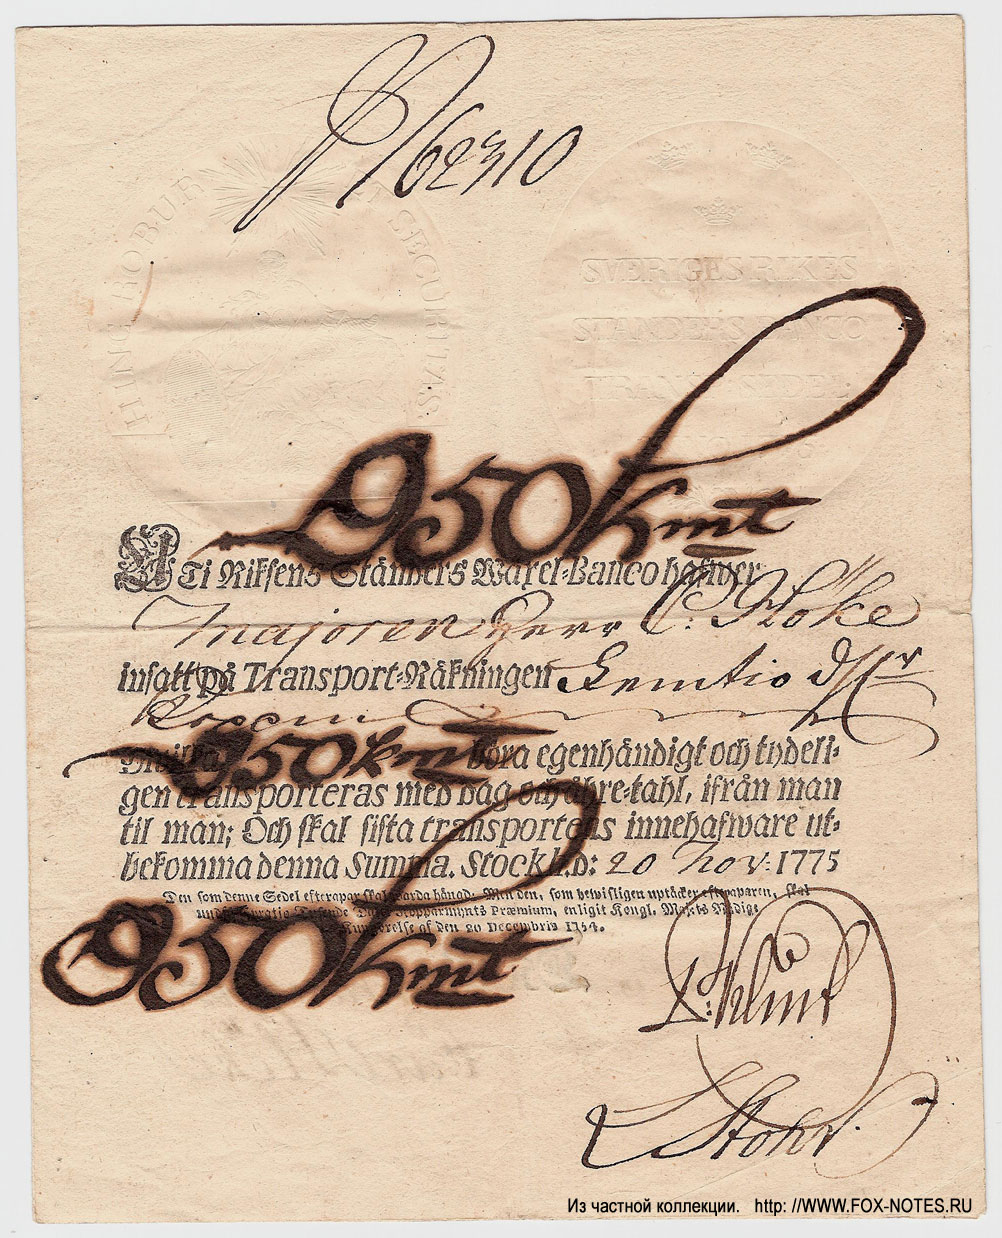 No 62310
HINC ROBUR ET SECURITAS
SVERIGES RIKES
STÄNDERS BANCO
TRANSP. SEDEL
950 kmt
UTi Riksens Ständers Wäxel-Banco hafwer
Majoren Herr C:
insatt på Transport-Räkningen
950 kmt böra egenhändigt och tydeli-
gen transporteras med dag och åhre-tahl, ifrån man
til man; Och skal sista transportens innehafware ut-
bekomma denna Summa. Stockh.D: 20 Nov: 1775
Den som denne Sedel efterapar skal warda hängd: Men den, som bewisligen uptäcker efteraparen, skal
undfå Fyratio Tusende Daler Kopparmynts Præmium, enligit Kongl. Maj:ts Nådige
Kungörelse af den 20 Decembris 1754.
950 kmt
Из частной коллекции. http: //WWW.FOX-NOTES.RU